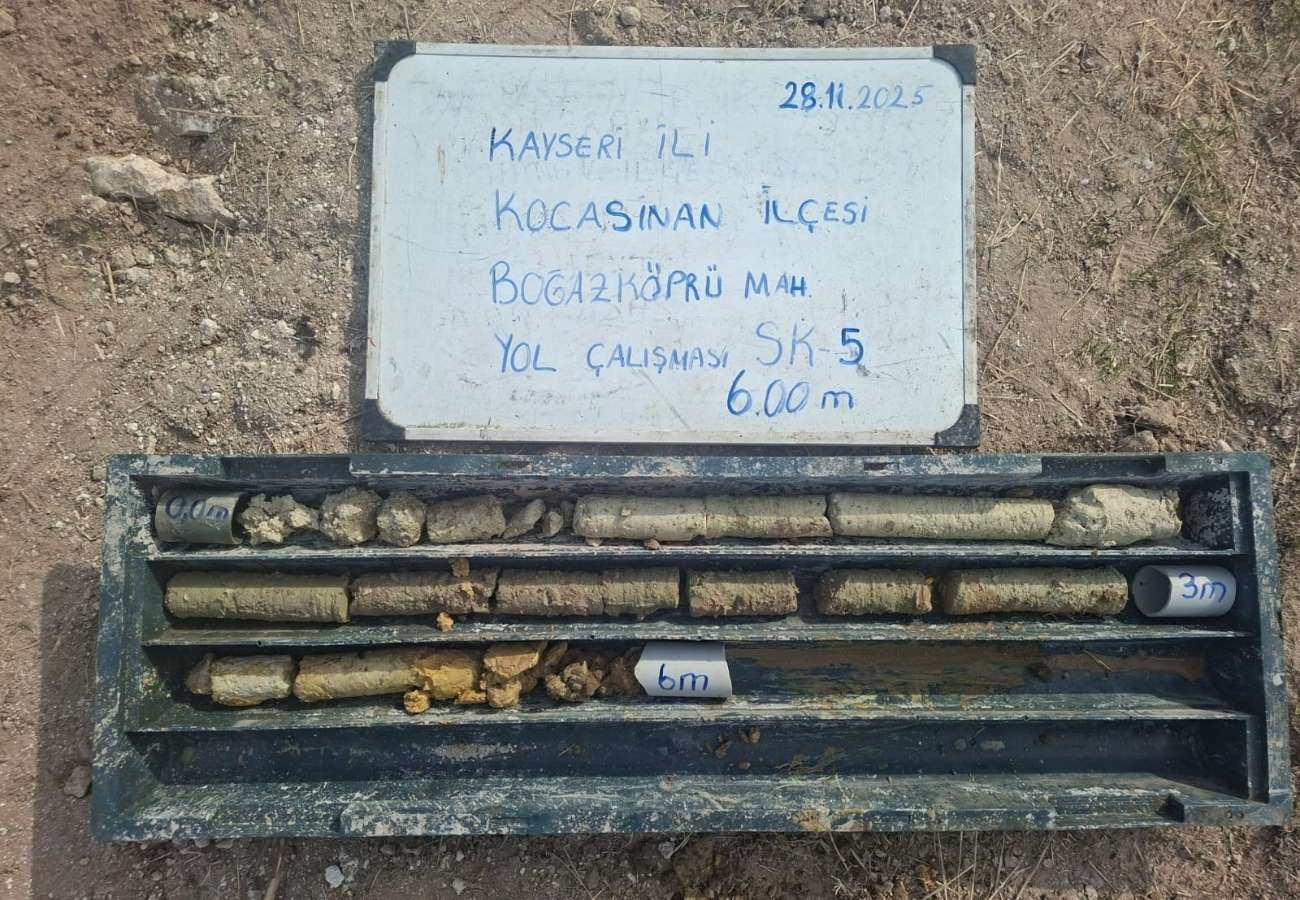 28.11.2025
KAYSERİ İLİ
KOCASİNAN İLÇESİ
BOĞAZKÖPRÜ MAH.
YOL ÇALIŞMASI SK-5
6.00 m
0,0m
3m
6m